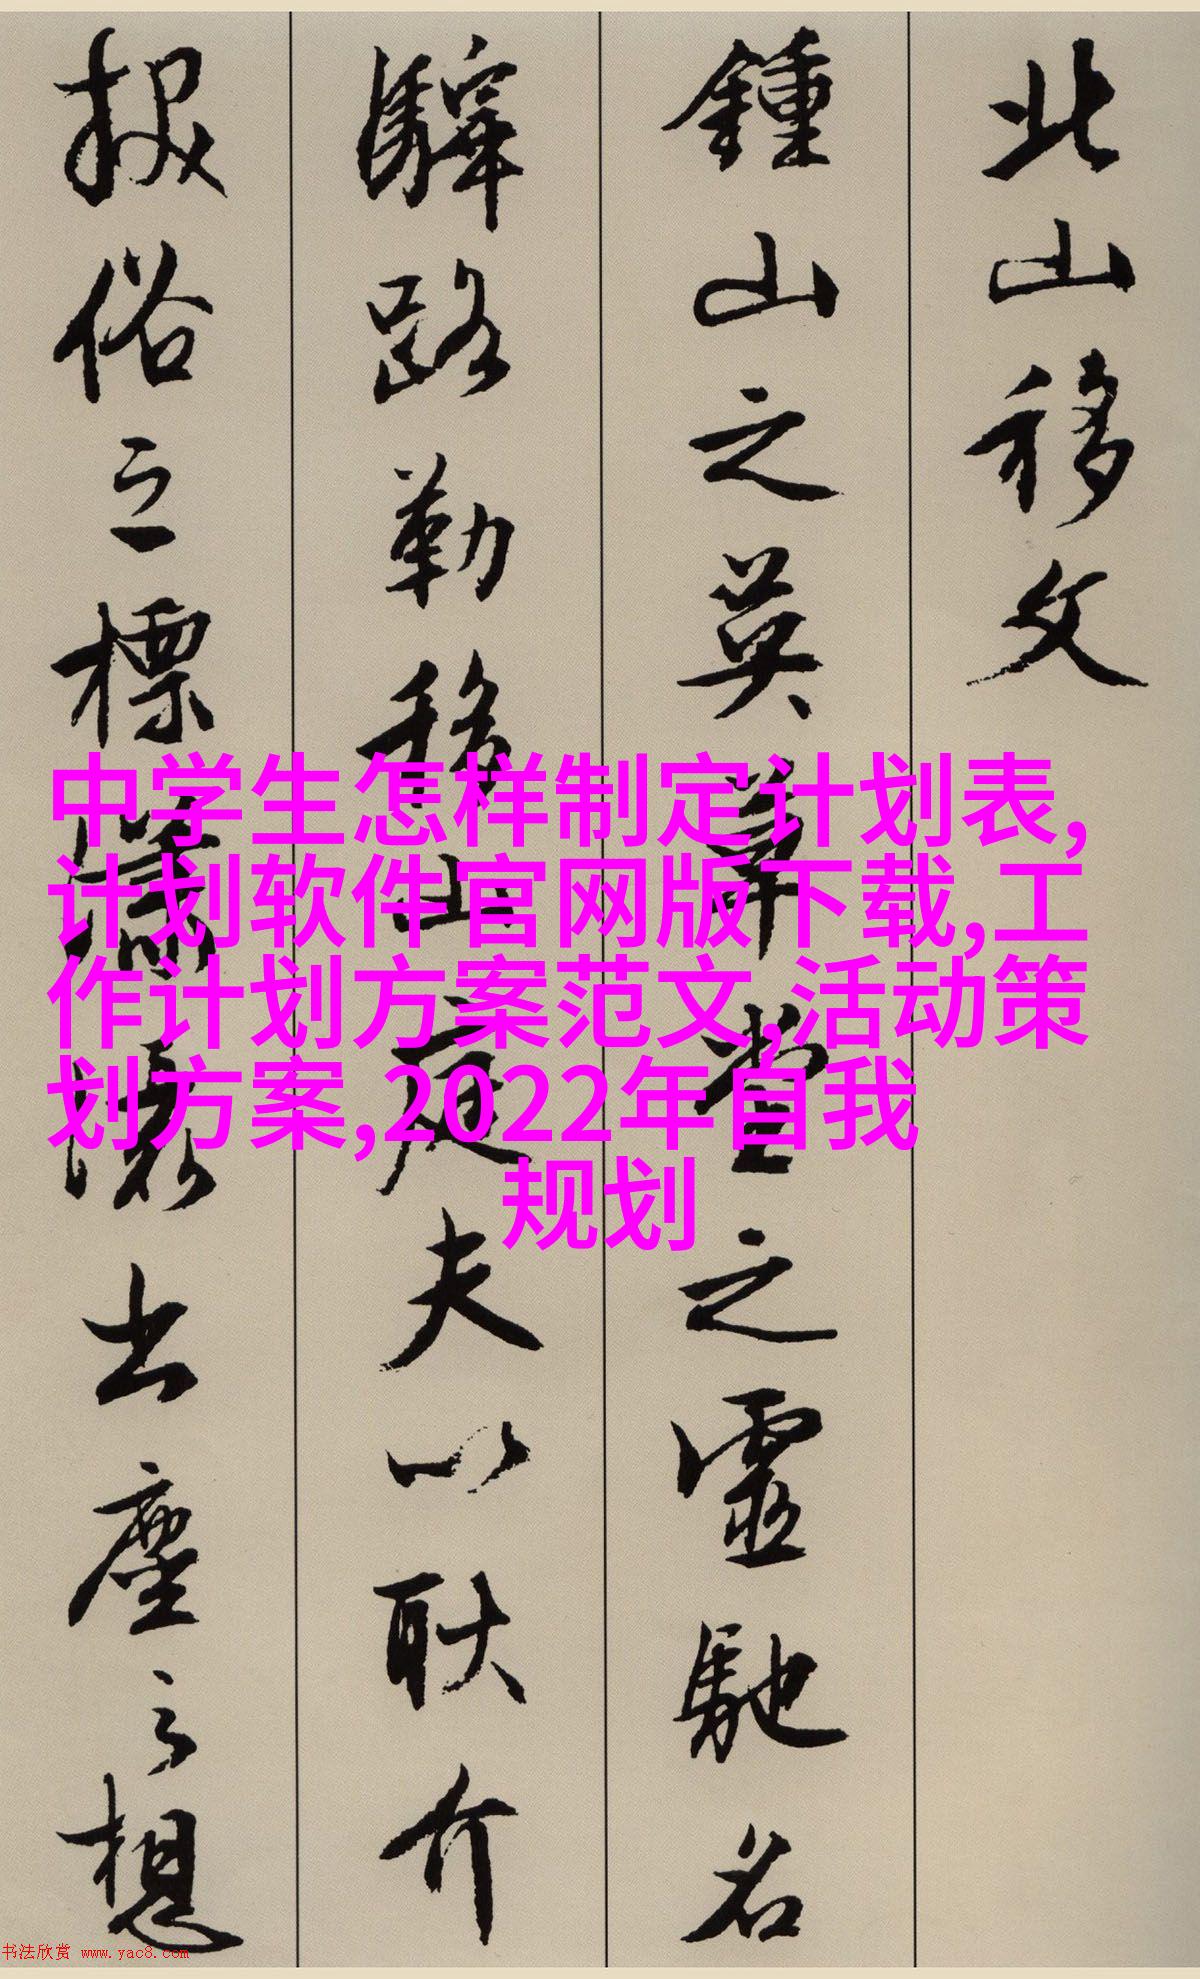 北山移文
鍾山之英草堂之靈馳名
驛路勒移山庭夫以耿介
拔俗之標瀟灑出塵之想
中学生怎样制定计划表,
计划软件官网版下载,工
作计划方案范文,活动策
划方案,2022年自我
规划
书法欣赏 www.yac8.com